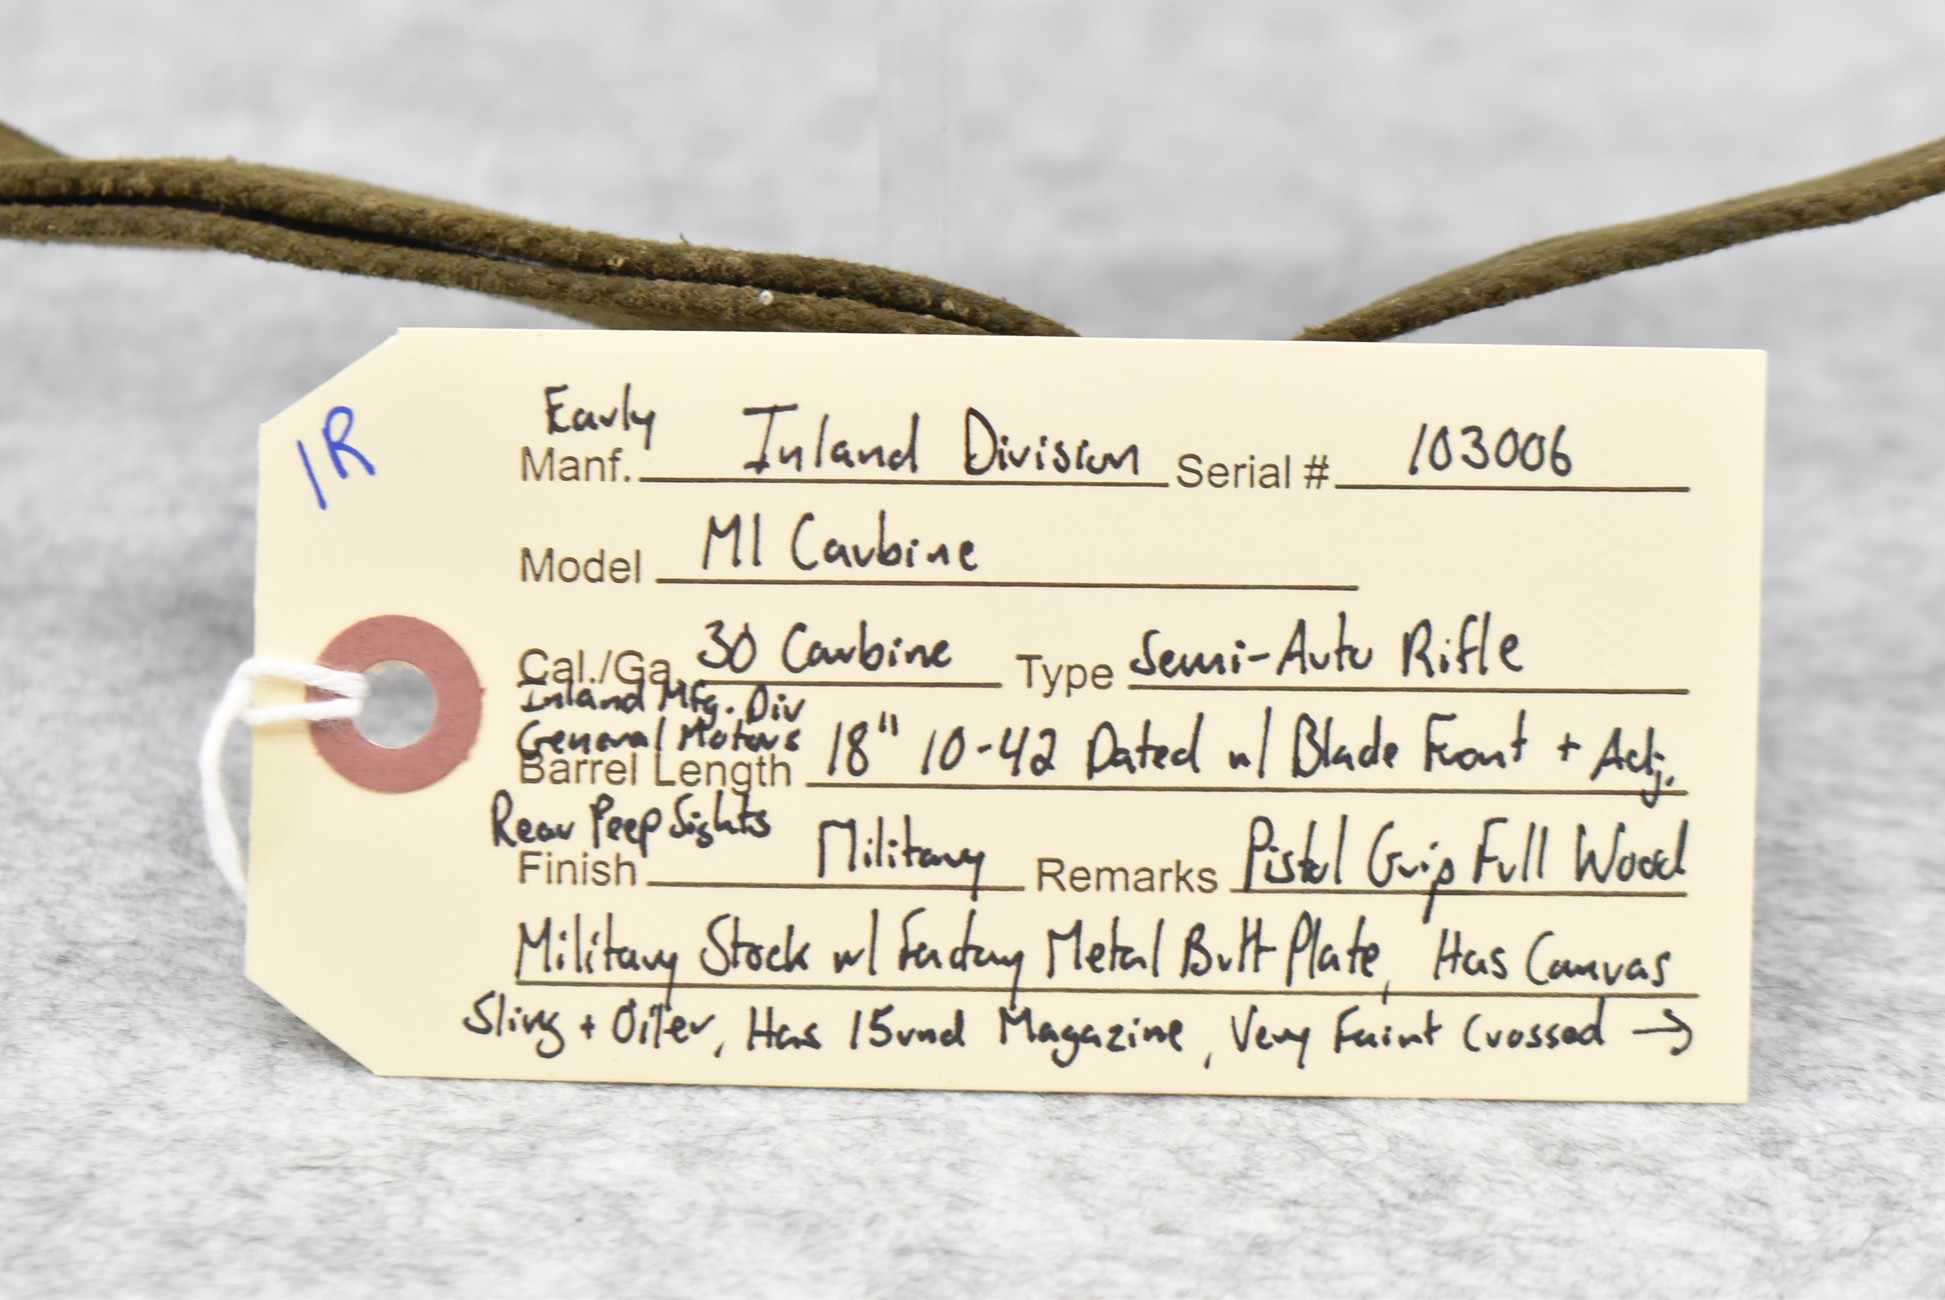 1R
Early
Manf. Inland Division Serial # 103006
Model M1 Carbine
Cal./Ga 30 Carbine Type Semi-Auto Rifle
Inland Mfg. Div
General Motors
Barrel Length 18" 10-42 Dated w/ Blade Front + Adj.
Rear Peep Sights
Finish Military Remarks Pistol Grip Full Wood
Military Stock w/ Factory Metal Butt Plate, Has Canvas
Sling + Oiler, Has 15rnd Magazine, Very Faint Crossed →